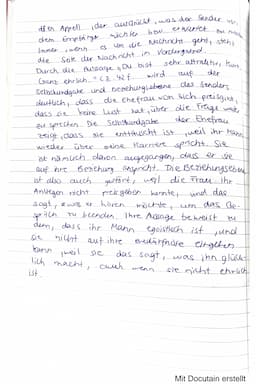 den Appell, der ausdrückt, was der Sender von
dem Empfänger möchte bzw. erwartet
Immer, wenn es um die Nachricht geht, steht
die Seite der Nachricht im Vordergrund.
Durch die Aussage „Du bist sehr attraktiv,
Ganz ehrlich." (Z. 42) wird auf der
Selbstkundgabe und Beziehungsebene des Senders
deutlich, dass die Ehefrau von sich preisgibt,
dass sie keine Lust hat, über die Frage weiter
zu sprechen. Die Selbstkundgabe der Ehefrau
zeigt, dass sie enttäuscht ist, weil ihr Mann
wieder über seine Karriere spricht. Sie
ist nämlich davon ausgegangen, dass er sie
auf ihre Beziehung anspricht. Die Beziehungsebene
ist also auch gestört, weil die Frau ihr
Anliegen nicht preisgeben konnte, und das
sagt, was er hören möchte, um das Ge-
spräch zu beenden. Ihre Aussage beweist zu
dem, dass ihr Mann egoistisch ist, und
sie nicht auf ihre Bedürfnisse eingehen
kann, weil sie das sagt, was ihn glück-
lich macht, auch wenn sie nicht ehrlich
ist.
Mit Docutain erstellt